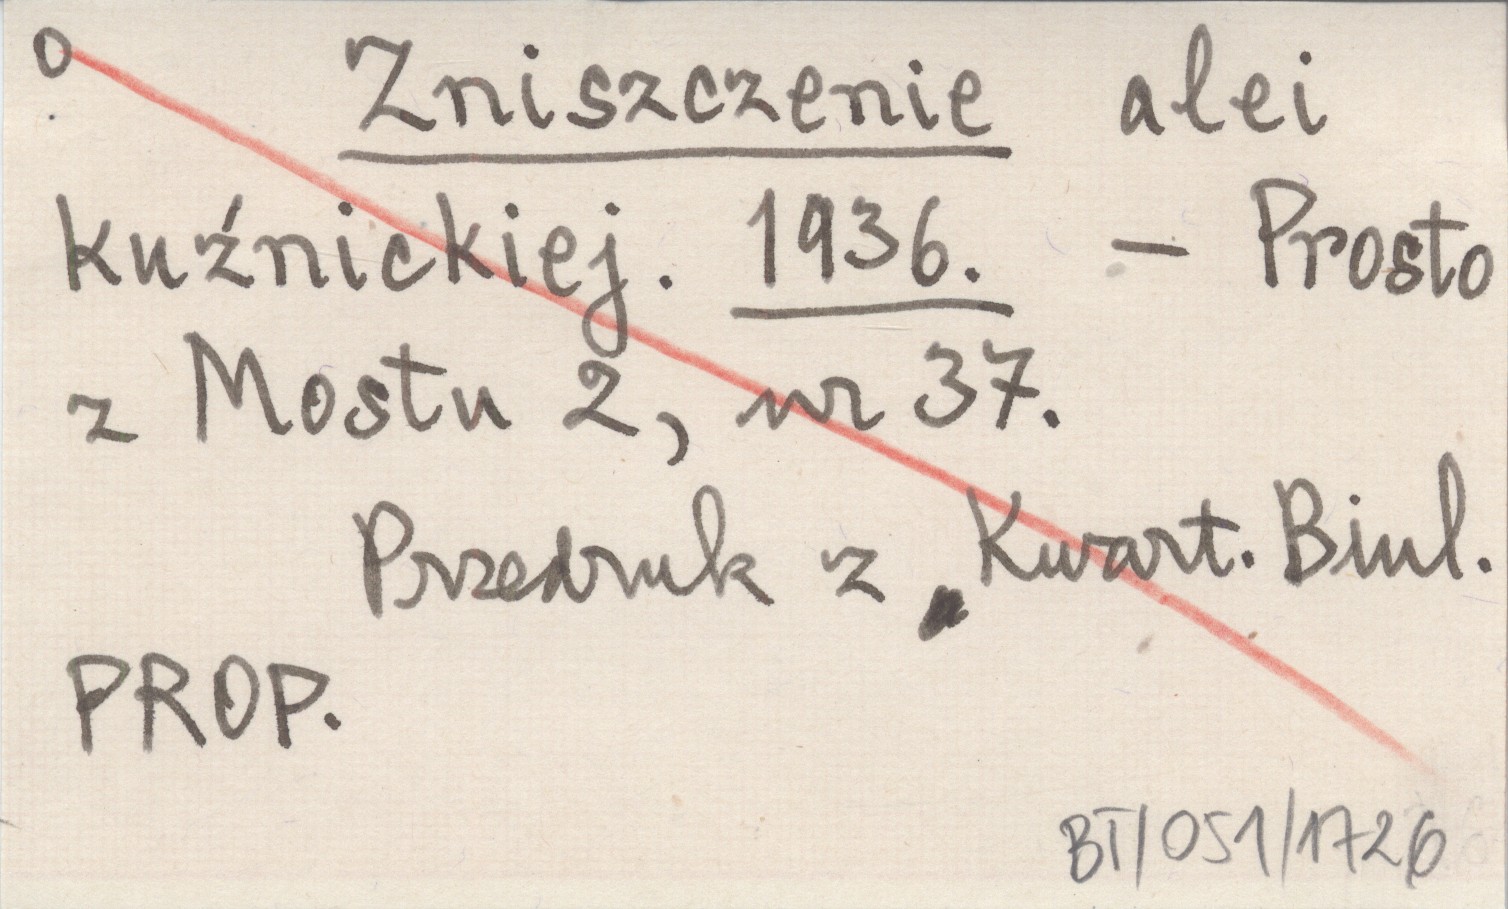 o Zniszczenie alei
kuźnickiej. 1936. - Prosto
z Mostu 2, nr 37.
Przedruk z Kwart. Biul.
PROP.
BT/051/1726